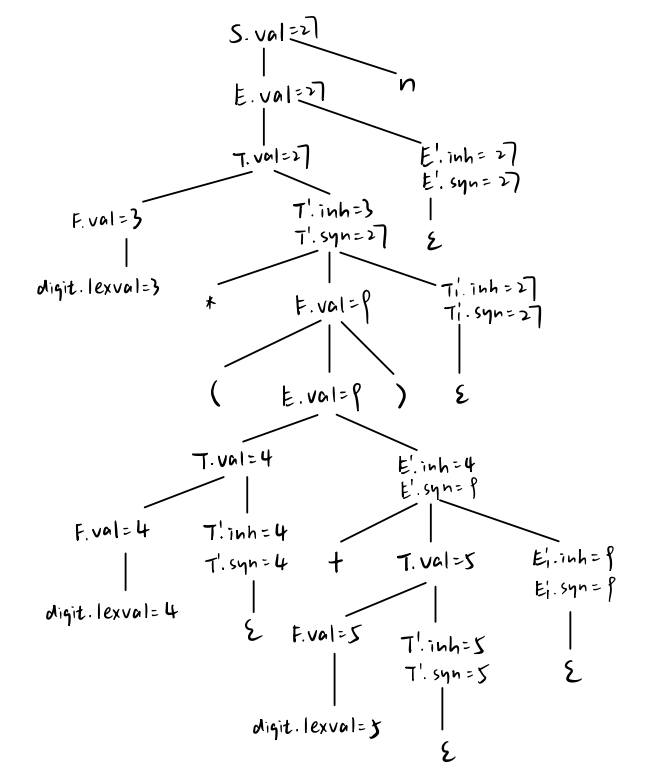 S.val=27
n
E.val=27
T.val=27
E'.inh=27
E'.syn=27
F.val=3
T'.inh=3
T'.syn=27
ε
digit.lexval=3
*
F.val=9
T'₁.inh=27
T'₁.syn=27
(
E.val=9
)
ε
T.val=4
E'.inh=4
E'.syn=9
F.val=4
T'.inh=4
T'.syn=4
+
T.val=5
E'₁.inh=9
E'₁.syn=9
digit.lexval=4
ε
F.val=5
T'.inh=5
T'.syn=5
ε
digit.lexval=5
ε